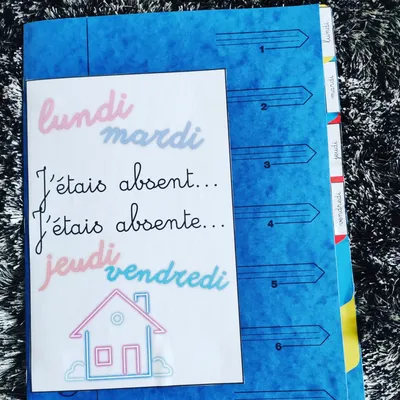 lundi
mardi
J'étais absent...
J'étais absente...
jeudi
vendredi
1
2
3
4
5
6
lundi
mardi
jeudi
vendredi